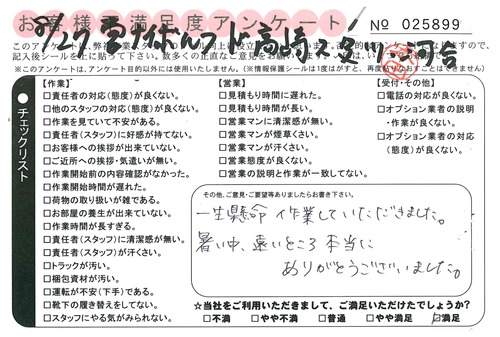 お客様満足度アンケート
№ 025899
8/27
高崎
河合
このアンケートは、弊社
記入後シールを上に貼って下さい。数多くの正直なご意見をお
※このアンケートは、アンケート目的以外には使用いたしません。(※情報保護シールは1度はがすと、再度
チェックリスト
【作業】
□責任者の対応(態度)が良くない。
□他のスタッフの対応(態度)が良くない。
□作業を見ていて不安がある。
□責任者(スタッフ)に好感が持てない。
□お客様への挨拶が出来ていない。
□ご近所への挨拶・気遣いが無い。
□作業開始前の内容確認がなかった。
□作業開始時間が遅れた。
□荷物の取り扱いが雑である。
□お部屋の養生が出来ていない。
□作業時間が長すぎる。
□責任者(スタッフ)に清潔感が無い。
□責任者(スタッフ)が汗くさい。
□トラックが汚い。
□梱包資材が汚い。
□運転が不安(下手)である。
□靴下の履き替えをしてない。
□スタッフにやる気がみられない。
【営業】
□見積もり時間に遅れた。
□見積もり時間が長い。
□営業マンに清潔感が無い。
□営業マンが煙草くさい。
□営業マンが汗くさい。
□営業態度が良くない。
□営業の説明と作業が一致してない。
【受付・その他】
□電話の対応が良くない。
□オプション業者の説明
・作業が良くない。
□オプション業者の対応
(態度)が良くない。
その他、ご意見・ご要望等ありましたらお書き下さい。
一生懸命作業していただきました。
暑い中、遠いところ本当に
ありがとうございいました。
☆当社をご利用いただきまして、ご満足いただけたでしょうか?
□不満 □やや不満 □普通 □やや満足 ☑満足